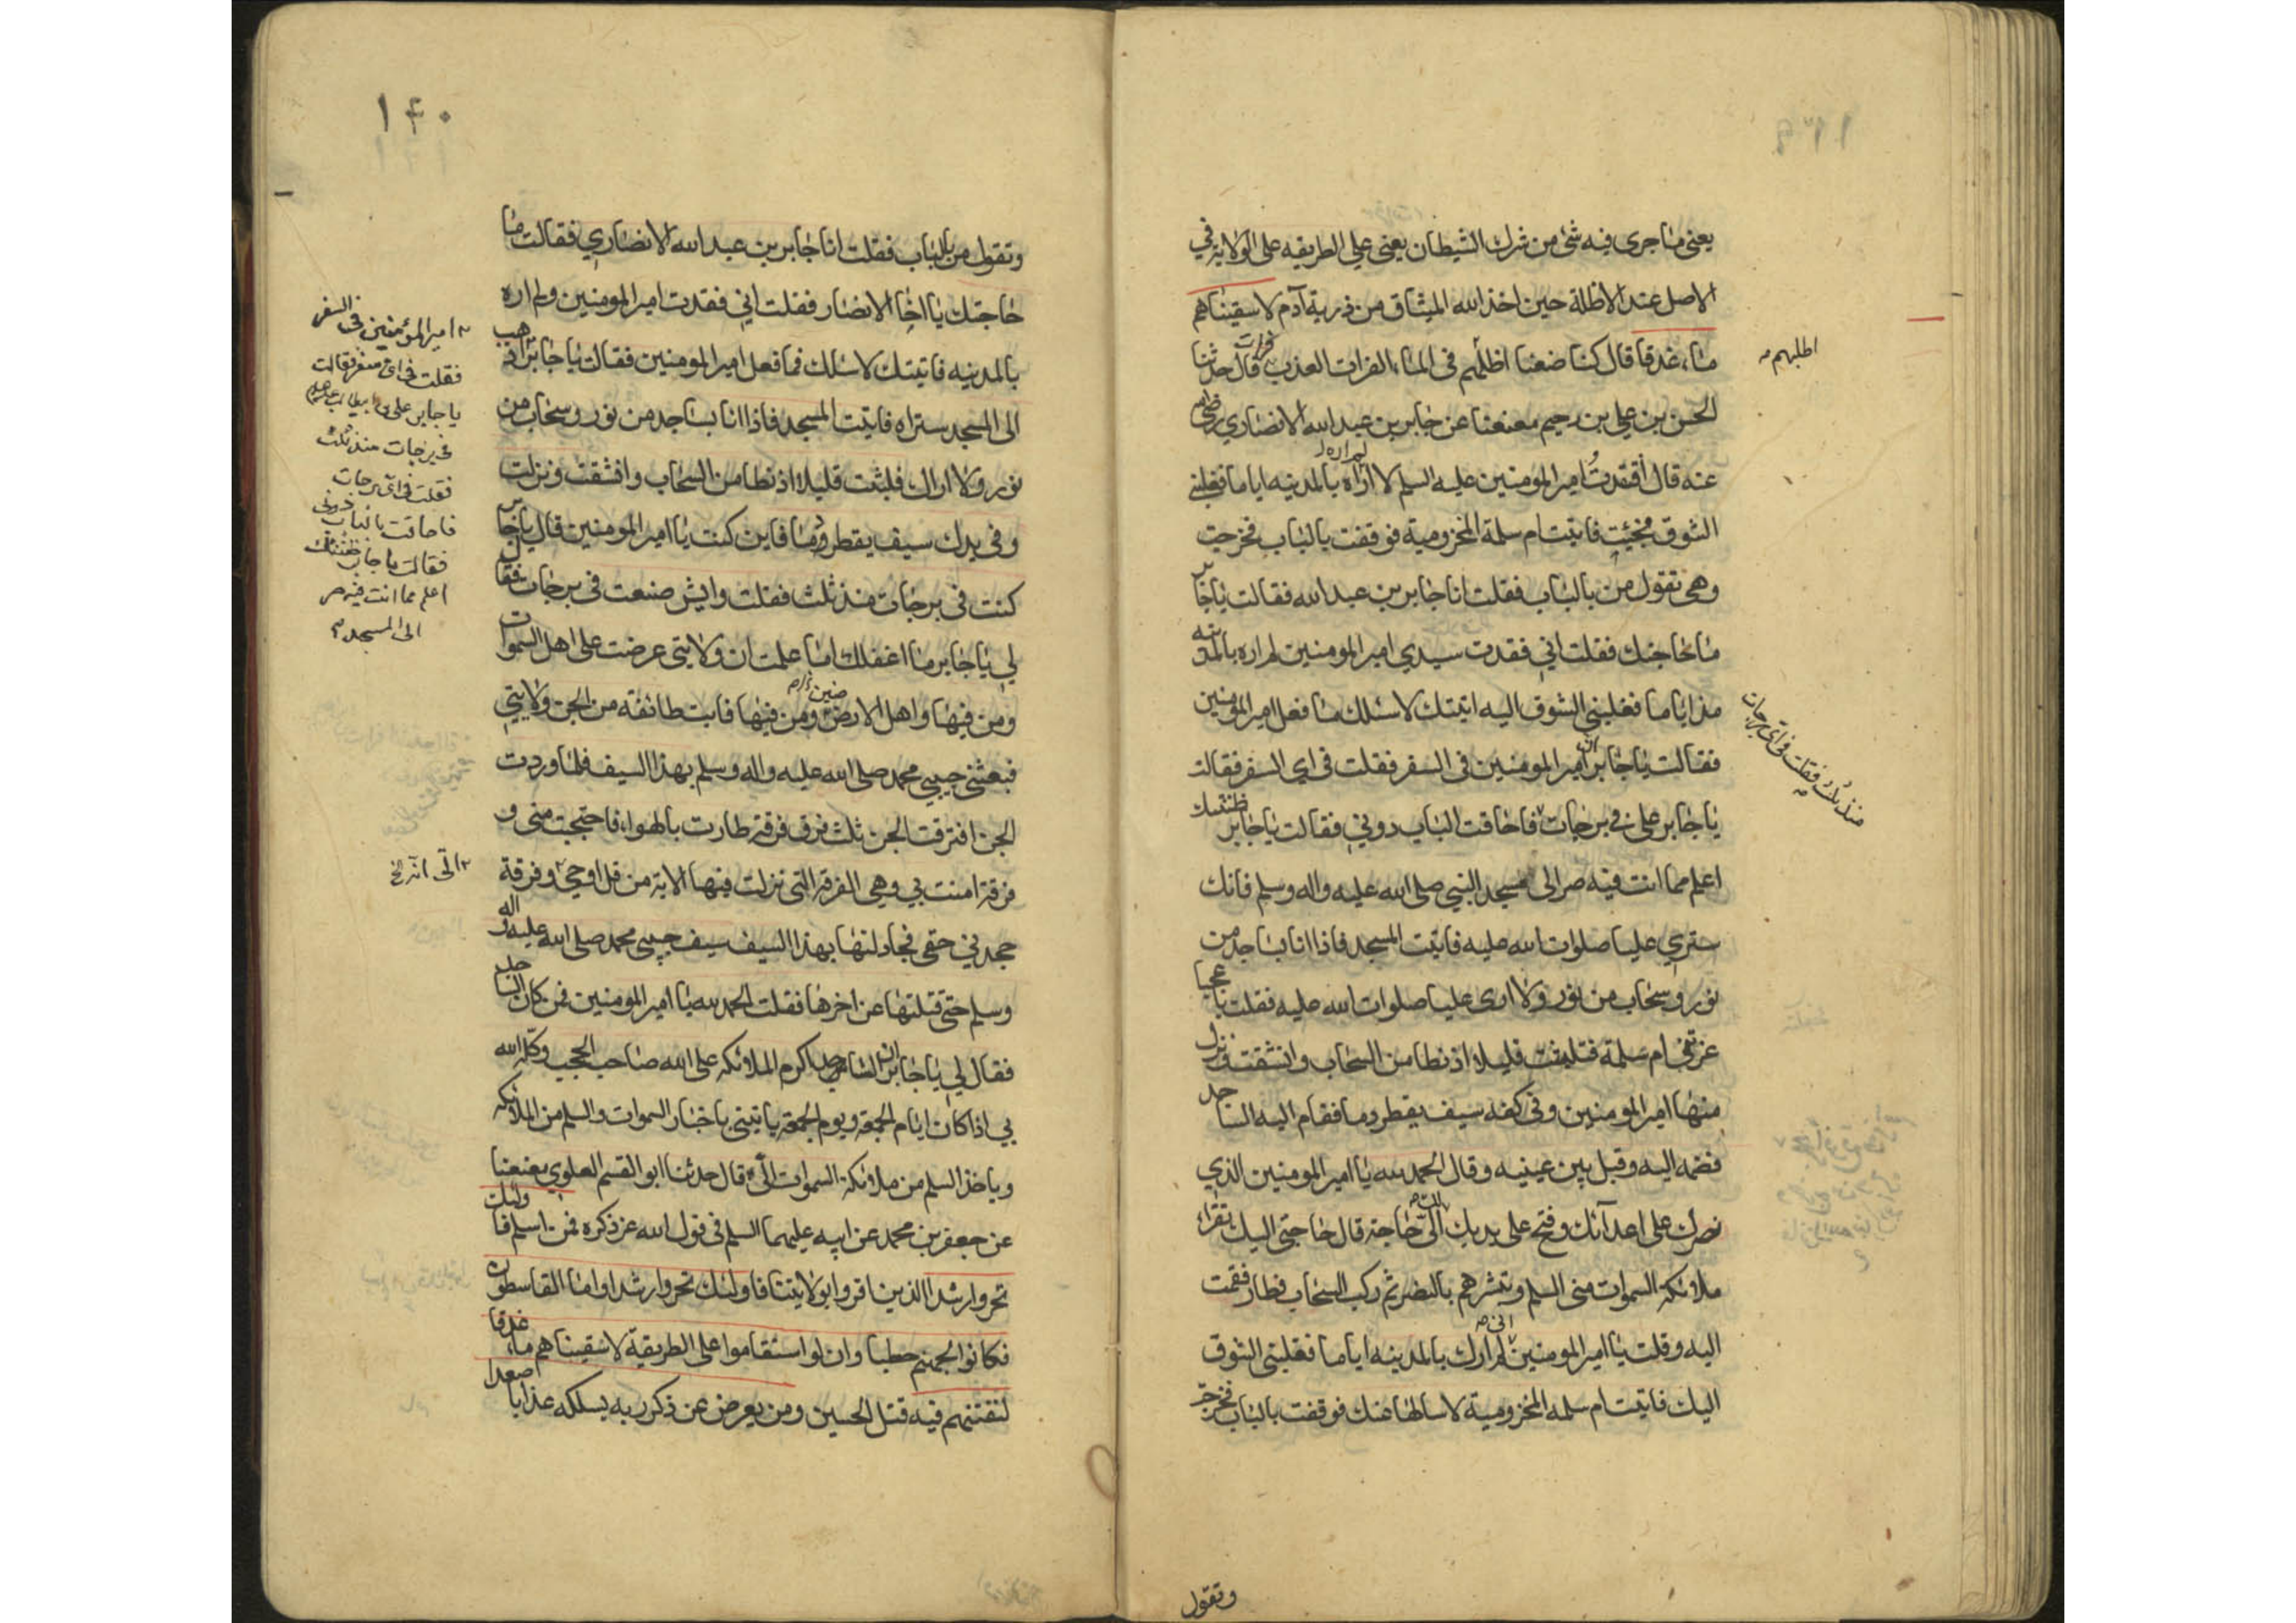 يعني ما جرى فيه شئ من شرك الشيطان يعني على الطريقه على الولاية في
الاصل عند الاظلة حين اخذ الله الميثاق من ذرية آدم لاسقيناهم
ماء غدقا قال كنا ضعنا اظلّهم في الماء الفرات العذب فرات قال حدثنا
اطلبهم
الحسن بن علي بن رحيم معنعنا عن جابر بن عبد الله الانصاري رضي
عنه قال افقدتُ امير المومنين عليه السلم لا اراه بالمدينه اياما فغلبني
لم اره
الشوق فجئت فاتيت ام سلمة المخزومية فوقفت بالباب فخرجت
وهي تقول من بالباب فقلت انا جابر بن عبد الله فقالت يا جابر
ما حاجتك فقلت اني فقدت سيدي امير المومنين لم اره بالمدينه
مذ اياما فغلبني الشوق اليه اتيتك لاسئلك ما فعل امير المومنين
فقالت يا جابر ان امير المومنين في السفر فقلت في اي السفر فقالت
يا جابر علي في برجات فاحافت الباب دوني فقالت يا جابر ظننتك
منذ ثلث فقلت في اي برجات
اعلم مما انت فيه صر الى مسجد النبي صلى الله عليه واله وسلم فانك
سترى عليا صلوات الله عليه فاتيت المسجد فاذا انا بساجد من
نور وسحاب من نور ولا ارى عليا صلوات الله عليه فقلت يا عجبا
غرتني ام سلمة فتلبثت قليلا اذ نطامن السحاب وانشقت ونزل
منها امير المومنين وفي كفه سيف يقطر دما فقام اليه الساجد
فضمه اليه وقبل بين عينيه وقال الحمد لله يا امير المومنين الذي
نصرك على اعدائك وفتح على يديك الك الىّ حاجة قال حاجتي اليك تقراء
ملائكة السموات مني السلم وتبشرهم بالنصر ثم ركب السحاب فطار فقمت
اليه وقلت يا امير المومنين اني لم ارك بالمدينه اياما فغلبني الشوق
اليك فاتيت ام سلمه المخزومية لاسالها عنك فوقفت بالباب فخرجت
وتقول
١٤٠
وتقول من بالباب فقلت انا جابر بن عبد الله الانصاري فقالت ما
حاجتك يا اخا الانصار فقلت اني فقدت امير المومنين ولم اره
بالمدينه فاتيتك لاسئلك فما فعل امير المومنين فقالت يا جابر اذهب
الى المسجد ستراه فاتيت المسجد فاذا انا بساجد من نور وسحاب من
نور ولا اراك فلبثت قليلا اذ نطامن السحاب وانشقت ونزلت
وفي يدك سيف يقطر دما فاين كنت يا امير المومنين قال يا جابر
كنت في برجات منذ ثلث فقلت وايش صنعت في برجات فقال
لي يا جابر ما اغفلك اما علمت ان ولايتي عرضت على اهل السموات
ومن فيها واهل الارضين ومن فيها فابت طائفة من الجن ولايتي
فبعثني حبيبي محمد صلى الله عليه واله وسلم بهذا السيف فلما وردت
الجن افترقت الجن ثلث فرق فرقة طارت بالهواء فاحتجبت مني و
فرقة امنت بي وهي الفرقة التي نزلت فيها الاية من قل اوحي وفرقة
جحدني حقي فجادلتها بهذا السيف سيف حبيبي محمد صلى الله عليه واله
وسلم حتى قتلتها عن اخرها فقلت الحمد لله يا امير المومنين فمن كان الساجد
فقال لي يا جابر ان الساجد اكرم الملائكه على الله صاحب الحجب وكله الله
بي اذا كان ايام الجمعة ويوم الجمعة ياتيني باخبار السموات والسلم من الملائكه
وياخذ السلم من ملائكة السموات الىّ قال حدثنا ابو القسم العلوي معنعنا
عن جعفر بن محمد عن ابيه عليهما السلم في قول الله عز ذكره فمن اسلم فاولئك
تحروا رشدا الذين اقروا بولايتنا فاولئك تحروا رشدا واما القاسطون
فكانوا لجهنم حطبا وان لو استقاموا على الطريقة لاسقيناهم ماء غدقا
لنفتنهم فيه قتل الحسين ومن يعرض عن ذكر ربه يسلكه عذابا صعدا
امير المؤمنين في السفر
فقلت في اي سفر فقالت
يا جابر علي بن ابيطالب
في برجات منذ ثلث
فقلت في اي برجات
فاحافت الباب دوني
فقالت يا جابر ظننتك
اعلم مما انت فيه صر
الى المسجد
الىّ انه الخ